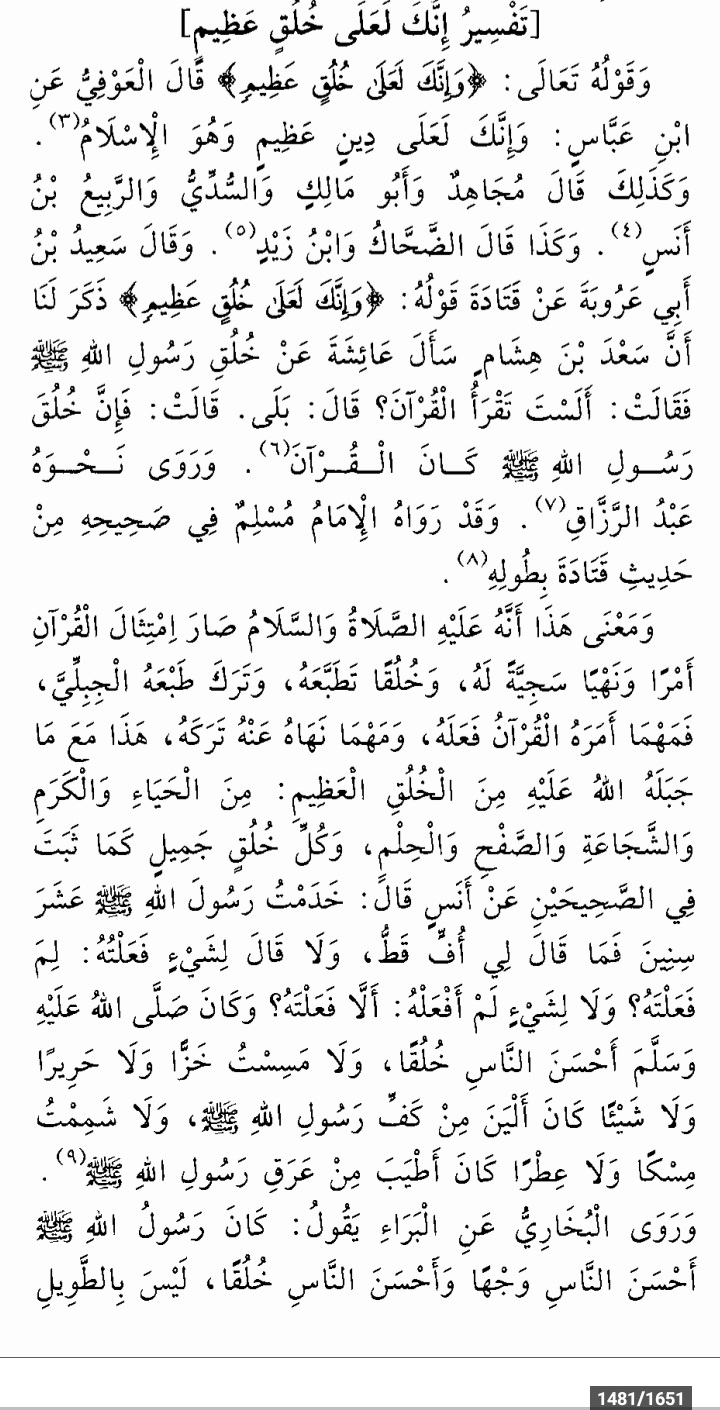 [تَفْسِيرُ إِنَّكَ لَعَلَى خُلُقٍ عَظِيمٍ]
وَقَوْلُهُ تَعَالَى: ﴿وَإِنَّكَ لَعَلَىٰ خُلُقٍ عَظِيمٍ﴾ قَالَ الْعَوْفِيُّ عَنِ
ابْنِ عَبَّاسٍ: وَإِنَّكَ لَعَلَى دِينٍ عَظِيمٍ وَهُوَ الْإِسْلَامُ(٣).
وَكَذَلِكَ قَالَ مُجَاهِدٌ وَأَبُو مَالِكٍ وَالسُّدِّيُّ وَالرَّبِيعُ بْنُ
أَنَسٍ(٤). وَكَذَا قَالَ الضَّحَّاكُ وَابْنُ زَيْدٍ(٥). وَقَالَ سَعِيدُ بْنُ
أَبِي عَرُوبَةَ عَنْ قَتَادَةَ قَوْلُهُ: ﴿وَإِنَّكَ لَعَلَىٰ خُلُقٍ عَظِيمٍ﴾ ذَكَرَ لَنَا
أَنَّ سَعْدَ بْنَ هِشَامٍ سَأَلَ عَائِشَةَ عَنْ خُلُقِ رَسُولِ اللهِ ﷺ
فَقَالَتْ: أَلَسْتَ تَقْرَأُ الْقُرْآنَ؟ قَالَ: بَلَى. قَالَتْ: فَإِنَّ خُلُقَ
رَسُـولِ اللهِ ﷺ كَـانَ الْـقُـرْآنَ(٦). وَرَوَى نَـحْـوَهُ
عَبْدُ الرَّزَّاقِ(٧). وَقَدْ رَوَاهُ الْإِمَامُ مُسْلِمٌ فِي صَحِيحِهِ مِنْ
حَدِيثِ قَتَادَةَ بِطُولِهِ(٨).
وَمَعْنَى هَذَا أَنَّهُ عَلَيْهِ الصَّلَاةُ وَالسَّلَامُ صَارَ اِمْتِثَالَ الْقُرْآنِ
أَمْرًا وَنَهْيًا سَجِيَّةً لَهُ، وَخُلُقًا تَطَبَّعَهُ، وَتَرَكَ طَبْعَهُ الْجِبِلِّيَّ،
فَمَهْمَا أَمَرَهُ الْقُرْآنُ فَعَلَهُ، وَمَهْمَا نَهَاهُ عَنْهُ تَرَكَهُ، هَذَا مَعَ مَا
جَبَلَهُ اللهُ عَلَيْهِ مِنَ الْخُلُقِ الْعَظِيمِ: مِنَ الْحَيَاءِ وَالْكَرَمِ
وَالشَّجَاعَةِ وَالصَّفْحِ وَالْحِلْمِ، وَكُلِّ خُلُقٍ جَمِيلٍ كَمَا ثَبَتَ
فِي الصَّحِيحَيْنِ عَنْ أَنَسٍ قَالَ: خَدَمْتُ رَسُولَ اللهِ ﷺ عَشَرَ
سِنِينَ فَمَا قَالَ لِي أُفٍّ قَطُّ، وَلَا قَالَ لِشَيْءٍ فَعَلْتُهُ: لِمَ
فَعَلْتَهُ؟ وَلَا لِشَيْءٍ لَمْ أَفْعَلْهُ: أَلَّا فَعَلْتَهُ؟ وَكَانَ صَلَّى اللهُ عَلَيْهِ
وَسَلَّمَ أَحْسَنَ النَّاسِ خُلُقًا، وَلَا مَسِسْتُ خَزًّا وَلَا حَرِيرًا
وَلَا شَيْئًا كَانَ أَلْيَنَ مِنْ كَفِّ رَسُولِ اللهِ ﷺ، وَلَا شَمِمْتُ
مِسْكًا وَلَا عِطْرًا كَانَ أَطْيَبَ مِنْ عَرَقِ رَسُولِ اللهِ ﷺ(٩).
وَرَوَى الْبُخَارِيُّ عَنِ الْبَرَاءِ يَقُولُ: كَانَ رَسُولُ اللهِ ﷺ
أَحْسَنَ النَّاسِ وَجْهًا وَأَحْسَنَ النَّاسِ خُلُقًا، لَيْسَ بِالطَّوِيلِ
1481/1651